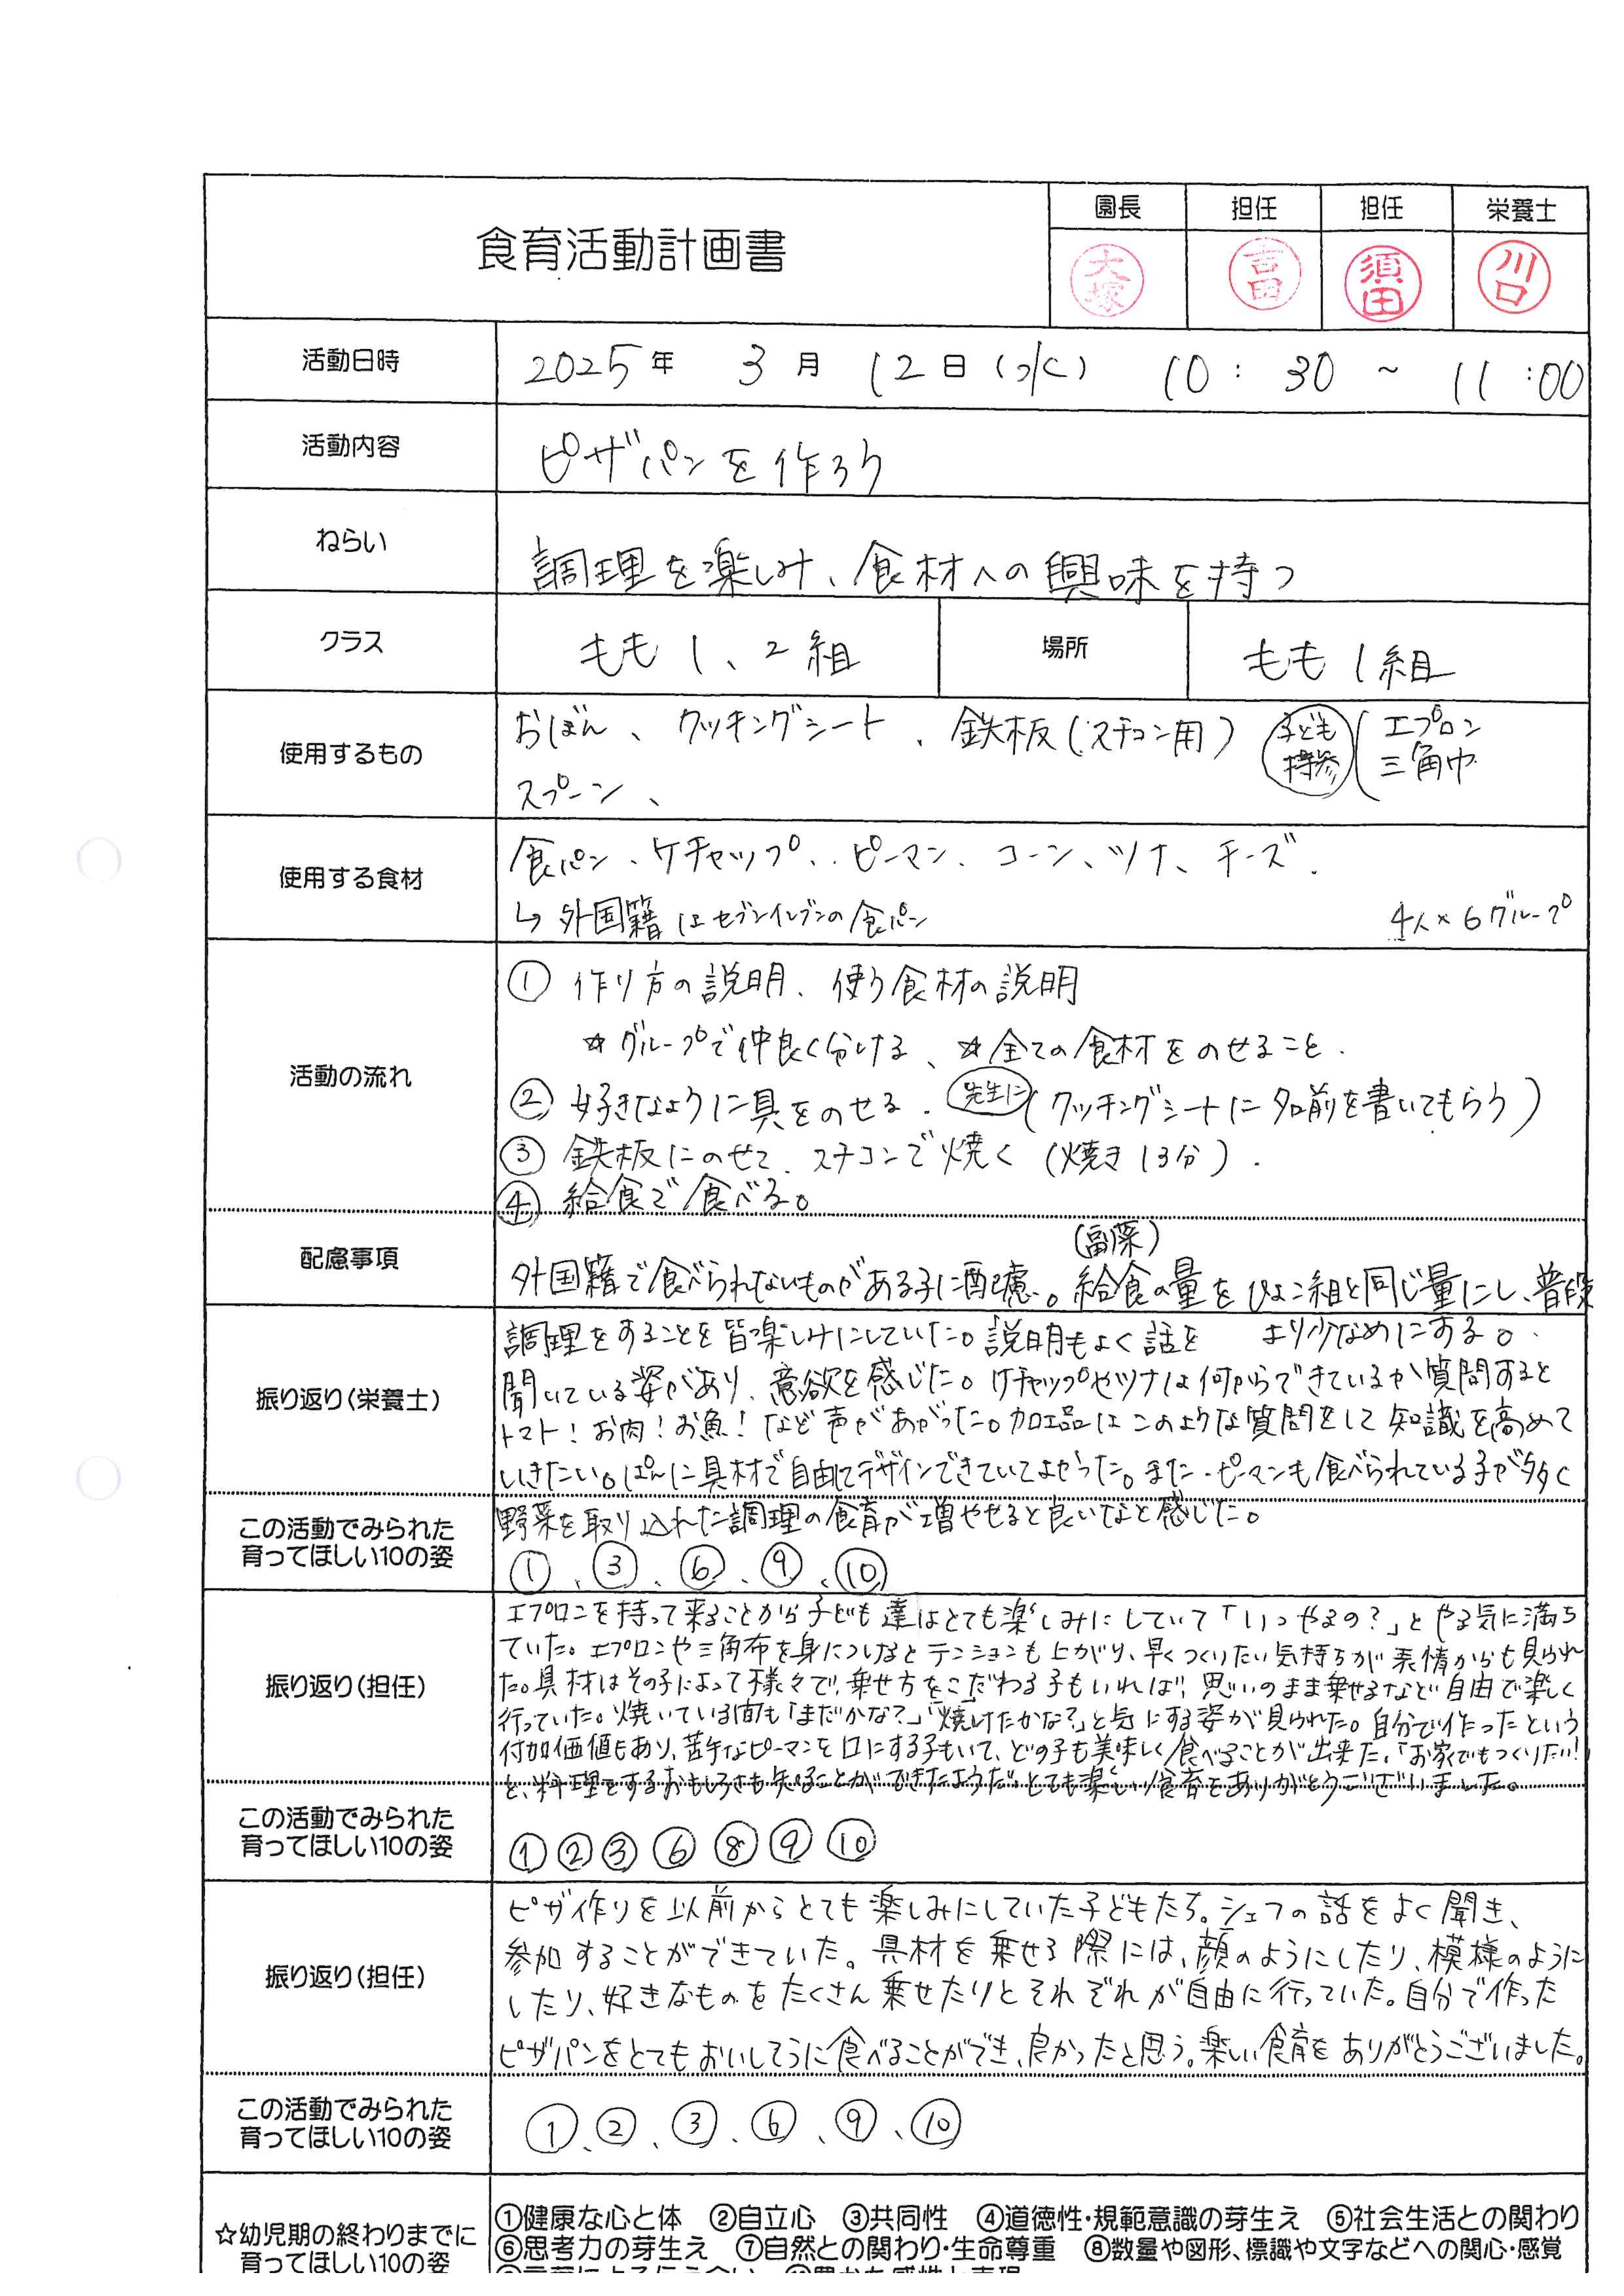 食育活動計画書
園長 担任 担任 栄養士
大塚 吉田 須田 川口
活動日時 2025年 3月 12日(水) 10:30 ~ 11:00
活動内容 ピザパンを作ろう
ねらい 調理を楽しみ、食材への興味を持つ
クラス もも1、2組 場所 もも1組
使用するもの おぼん、クッキングシート、鉄板(スチコン用) 子ども持参(エプロン 三角巾
スプーン、
使用する食材 食パン、ケチャップ、ピーマン、コーン、ツナ、チーズ.
↳外国籍はセブンイレブンの食パン 4人×6グループ
活動の流れ ① 作り方の説明、使う食材の説明
☆グループで仲良く分ける、☆全ての食材をのせること.
② 好きなように具をのせる. 先生に(クッキングシートに名前を書いてもらう)
③ 鉄板にのせて、スチコンで焼く(焼き13分).
④ 給食で食べる。
(副菜)
配慮事項 外国籍で食べられないものがある子に配慮。給食の量をひよこ組と同じ量にし、普段
より少なめにする。
振り返り(栄養士) 調理をすることを皆楽しみにしていた。説明もよく話を
聞いている姿があり、意欲を感じた。ケチャップやツナは何からできているか質問すると
トマト!お肉!お魚!など声があがった。加工品はこのような質問をして知識を高めて
いきたい。ぱんに具材で自由にデザインできていてよかった。また、ピーマンも食べられている子が多く
野菜を取り込れた調理の食育が増やせると良いなと感じた。
この活動でみられた
育ってほしい10の姿 ①、③、⑥、⑨、⑩
振り返り(担任) エプロンを持って来ることから子ども達はとても楽しみにしていて「いつやるの?」とやる気に満ち
ていた。エプロンや三角布を身につけるとテンションも上がり、早くつくりたい気持ちが表情からも見られ
た。具材はその子によって様々で、乗せ方をこだわる子もいれば、思いのまま乗せるなど自由で楽しく
行っていた。焼いている間も「まだかな?」「焼けたかな?」と気にする姿が見られた。自分で作ったという
付加価値もあり、苦手なピーマンを口にする子もいて、どの子も美味しく食べることが出来た。「お家でもつくりたい!」
と、料理をするおもしろさも知ることができたようだ。とても楽しい食育をありがとうございました。
この活動でみられた
育ってほしい10の姿 ①②③⑥⑧⑨⑩
振り返り(担任) ピザ作りを以前からとても楽しみにしていた子どもたち。シェフの話をよく聞き、
参加することができていた。具材を乗せる際には、顔のようにしたり、模様のように
したり、好きなものをたくさん乗せたりとそれぞれが自由に行っていた。自分で作った
ピザパンをとてもおいしそうに食べることができ、良かったと思う。楽しい食育をありがとうございました。
この活動でみられた
育ってほしい10の姿 ①、②、③、⑥、⑨、⑩
☆幼児期の終わりまでに
育ってほしい10の姿
①健康な心と体 ②自立心 ③共同性 ④道徳性・規範意識の芽生え ⑤社会生活との関わり
⑥思考力の芽生え ⑦自然との関わり・生命尊重 ⑧数量や図形、標識や文字などへの関心・感覚